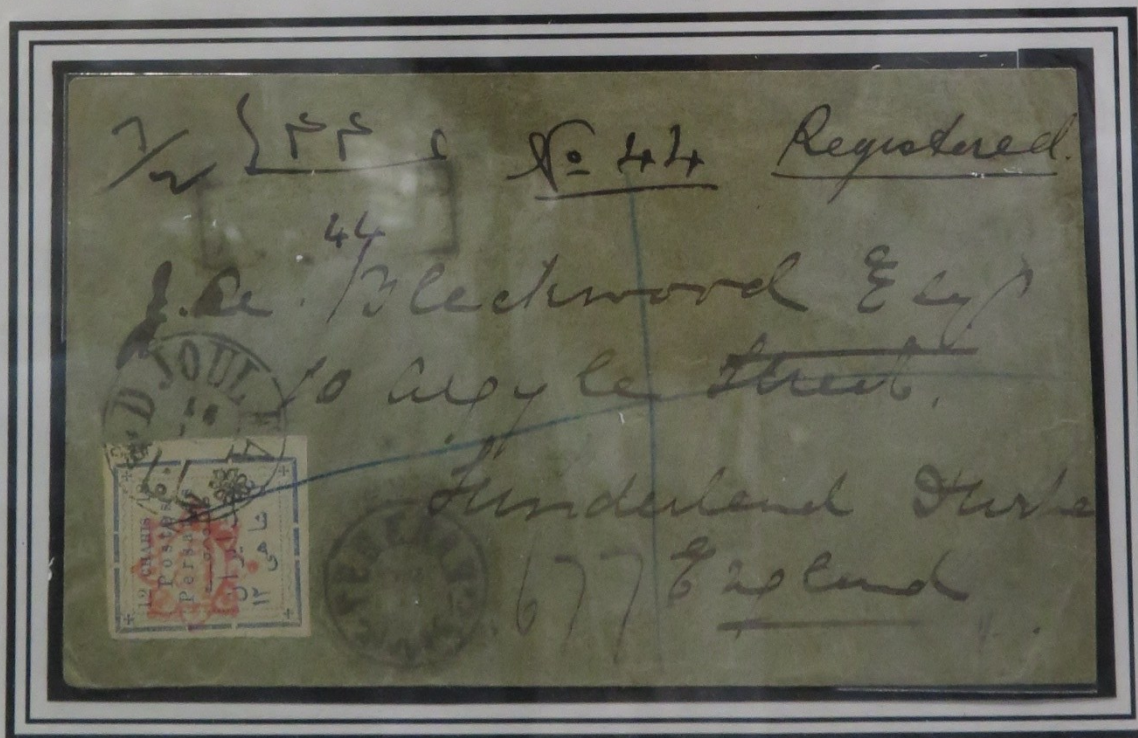 ٤٤ No 44 Registered.
44
Blackwood Esqr
10 Argyle Street,
Sunderland
England
677
DJOULFA
TEHERAN
12 CHAHIS
Postes
Persanes
۱۲ شاهی